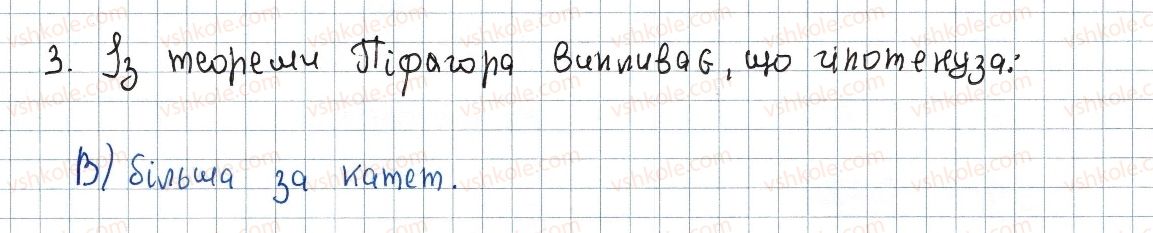 3. Із теореми Піфагора випливає, що гіпотенуза:
В) більша за катет.